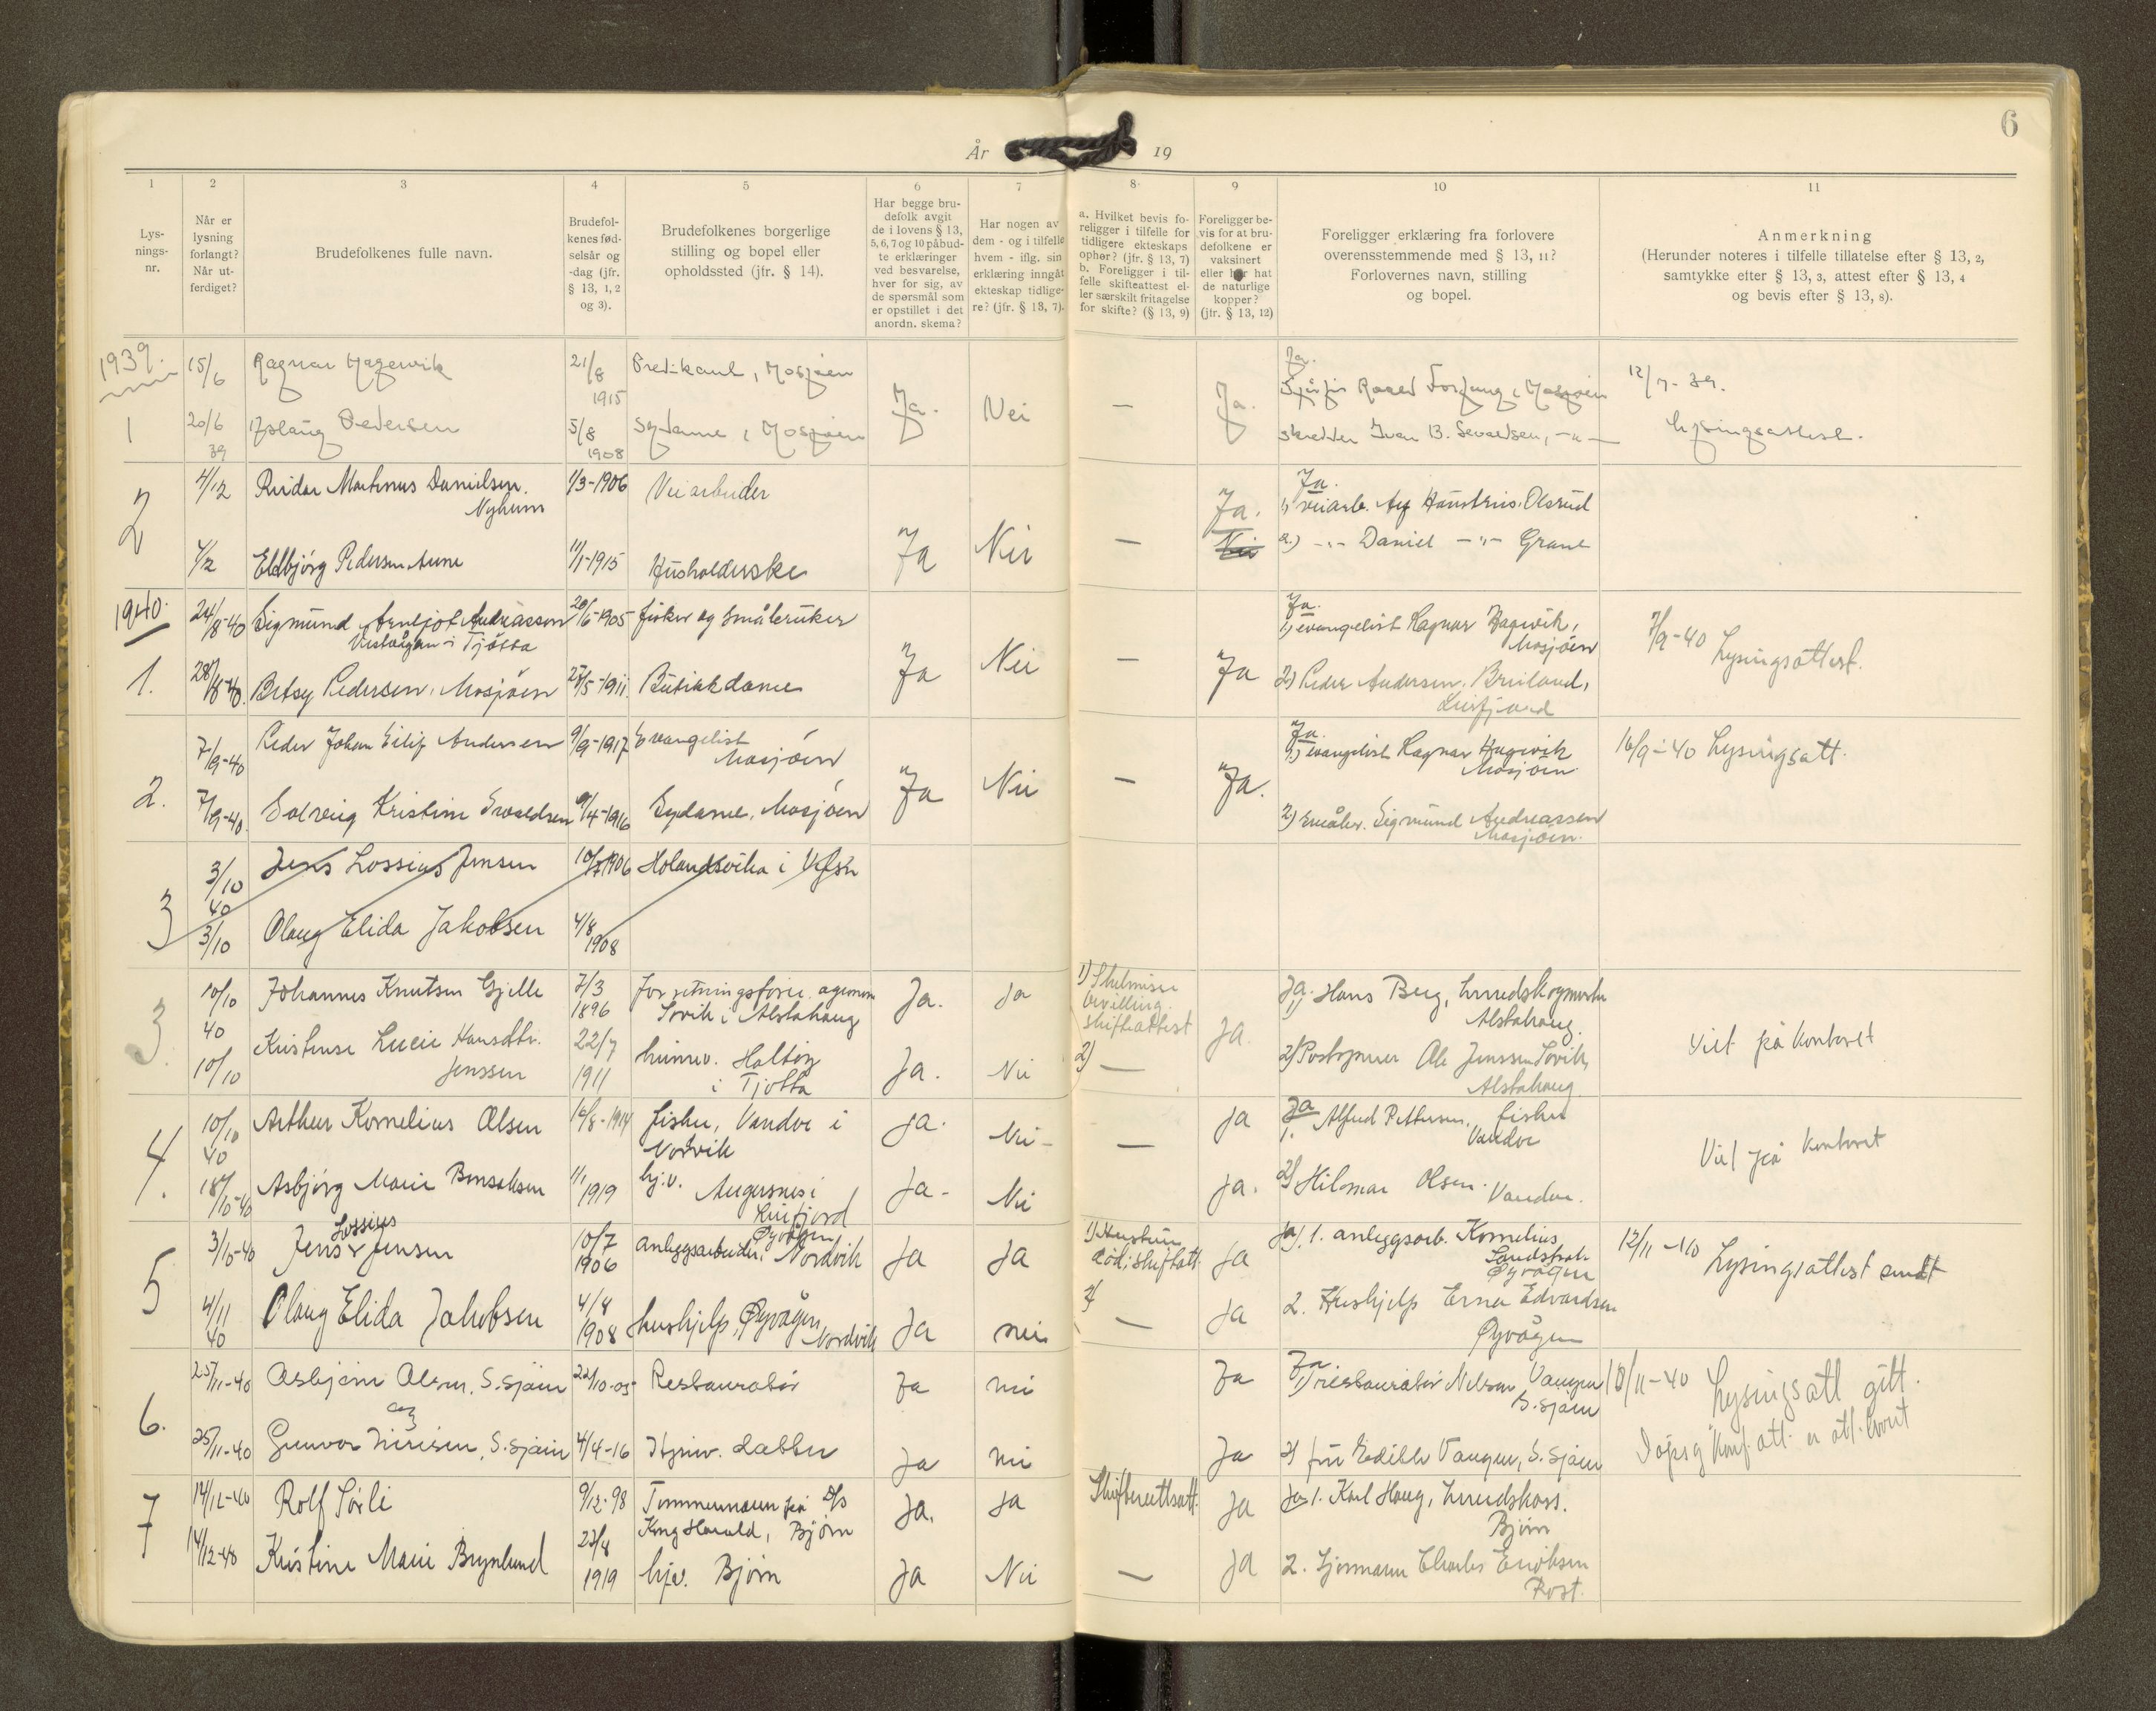 6
År 19
1
2
3
4
5
6
7
8
9
10
11
Lys-
nings-
nr.
Når er
lysning
forlangt?
Når ut-
ferdiget?
Brudefolkenes fulle navn.
Brudefol-
kenes fød-
selsår og
-dag (jfr.
§ 13, 1, 2
og 3).
Brudefolkenes borgerlige
stilling og bopel eller
opholdssted (jfr. § 14).
Har begge bru-
defolk avgit
de i lovens § 13,
5, 6, 7 og 10 påbud-
te erklæringer
ved besvarelse,
hver for sig, av
de spørsmål som
er opstillet i det
anordn. skema?
Har nogen av
dem - og i tilfelle
hvem - iflg. sin
erklæring inngåt
ekteskap tidlige-
re? (jfr. § 13, 7).
a. Hvilket bevis fo-
religger i tilfelle for
tidligere ekteskaps
ophør? (jfr. § 13, 7)
b. Foreligger i til-
felle skifteattest el-
ler særskilt fritagelse
for skifte? (§ 13, 9)
Foreligger be-
vis for at bru-
defolkene er
vaksinert
eller har hat
de naturlige
kopper?
(jfr. § 13, 12)
Foreligger erklæring fra forlovere
overensstemmende med § 13, 11?
Forlovernes navn, stilling
og bopel.
Anmerkning
(Herunder noteres i tilfelle tillatelse efter § 13, 2,
samtykke efter § 13, 3, attest efter § 13, 4
og bevis efter § 13, 8).
1939.
1
15/6
Ragnar Hagevik
21/8
1915
Predikant, Mosjøen
20/6
39
Aslaug Pedersen
5/8
1908
Sydame, Mosjøen
Ja.
Nei
—
Ja.
Ja.
Mosjøen
skredder Ivar B. Sevaldsen, -"-
12/7-39.
Lysingsattest.
2
4/12
Reidar Martinus Danielsen
Nyheim
1/3-1906
Veiarbeider
4/12
Eldbjørg Pedersen Aune
11/1-1915
Husholderske
Ja
Nei
—
Ja.
Nei
Ja.
1) veiarb. Olsrud
2.) -"- Daniel -"- Grane
1940.
1.
24/8-40
Sigmund Arneljot Andreassen
Vistvågan i Tjøtta
20/6-1905
fisker og småbruker
28/8-40.
Betsy Pedersen, Mosjøen
25/5-1911.
Butikkdame
Ja
Nei
—
Ja
Ja.
1) evangelist Ragnar Hagevik,
Mosjøen
2) Peder Andersen, Breiland,
Leirfjord
7/9-40 Lysingsattest.
2.
7/9-40
Peder Johan Eilif Andersen
9/9-1917
Evangelist
Mosjøen
7/9-40.
Solveig Kristine Sevaldsen
9/4-1916
Sydame, Mosjøen
Ja
Nei
—
Ja.
Ja.
1) evangelist Ragnar Hagevik
Mosjøen.
2) småbr. Sigmund Andreassen
Mosjøen.
16/9-40 Lysingsatt.
3
3/10
40
Jens Lossius Jensen
10/7 1906
Holandsvika i Vefsn
3/10
Olaug Elida Jakobsen
4/8
1908
3.
10/10
40
Johannes Knutsen Gjelle
7/3
1896
forretningsfører, agronom
Søvik i Alstahaug
Ja.
Ja
1) Skilmisse
bevilling.
skifteattest
10/10
Kristense Lucie Hansdtr.
Jenssen
22/7
1911
heimev. Holtøy
i Tjøtta
Ja.
Nei
2) —
Ja.
Ja.
1) Hans Berg, herredskogmester
Alstahaug.
2) Postopner Ole Jenssen Søvik,
Alstahaug.
Viet på kontoret
4.
10/10
40
Arthur Kornelius Olsen
16/8-1914
fisker, Vandve i
Nordvik
Ja.
Nei-
—
Ja
18/10-40
Asbjørg Marie Bensaksen
11/1
1919
hj.v. Angersnes i
Leirfjord
Ja-
Nei
Ja.
Ja
1. Alfred Pettersen, fisker
Vandve
2) Hilmar Olsen. Vandve.
Viet på kontoret
5
3/10-40
Lossius
Jens Jensen
10/7
1906
Øyvågen
anleggsarbeider, Nordvik
Ja
Ja
1) Hustru
død: skifteatt.
Ja
4/11
40
Olaug Elida Jakobsen
4/8
1908
hushjelp, Øyvågen
Nordvik
Ja
nei
2)
—
Ja
Ja, 1. anleggsarb. Kornelius
Sandstrak
Øyvågen
2. Hushjelp Erna Edvardsen
Øyvågen
12/11-40 Lysingsattest sendt
6.
25/11-40
Asbjørn Olsen, S.sjøen
22/10-05
Restauratør
Ja
nei
Ja
og
25/11-40
Gunvor Iversen, S.sjøen
4/4-16
Hjemv. datter
Ja
nei
Ja
Ja.
1) restauratør Nelson Vangen
S.sjøen
2) fru Edith Vangen, S.sjøen
18/11-40 Lysingsatt gitt.
Dåps og konf. att. er att. levert
7
14/12-40
Rolf Sørli
9/12-98
Tømmermann på D/S
Kong Harald, Bjørn
Ja.
Ja
Skifterettsatt.
Ja
14/12-40
Kristine Marie Brynlund
23/8
1919
hjv. Bjørn
Ja
Nei
—
Ja
Ja 1. Karl Haug, herredskass.
Bjørn
2. Styrmann Charles Eriksen
Røst.